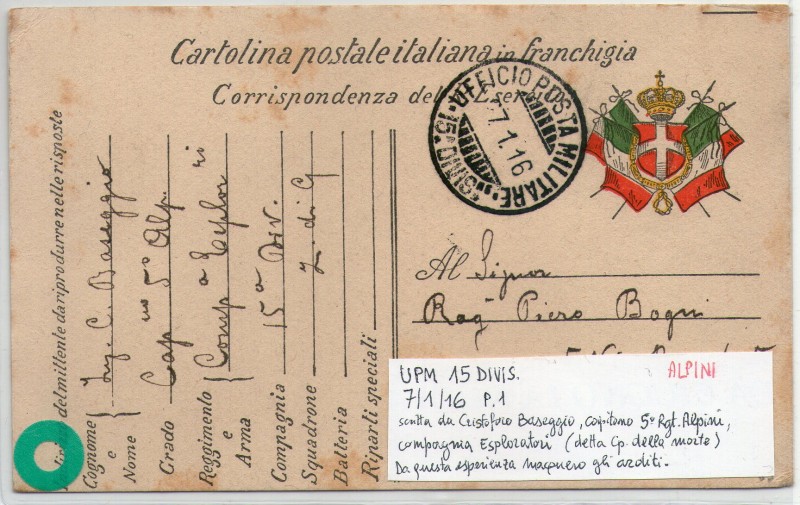 Cartolina postale italiana in franchigia
Corrispondenza del R. Esercito
UFFICIO POSTA MILITARE
15ª DIVIS.
7.1.16
del mittente da riprodurre nelle risposte
Cognome e Nome Ing. C. Baseggio
Grado Cap no 5º Alp.
Reggimento e Arma Compa Esplor ri
Compagnia 15a Div.
Squadrone Z. di G
Batteria
Riparti speciali
Al Signor
Rag Piero Bogni
UPM 15 DIVIS. ALPINI
7/1/16 P.1
scritta da Cristoforo Baseggio, capitano 5º Rgt. Alpini,
compagnia Esploratori (detta Cp. della morte)
Da questa esperienza nacquero gli arditi.